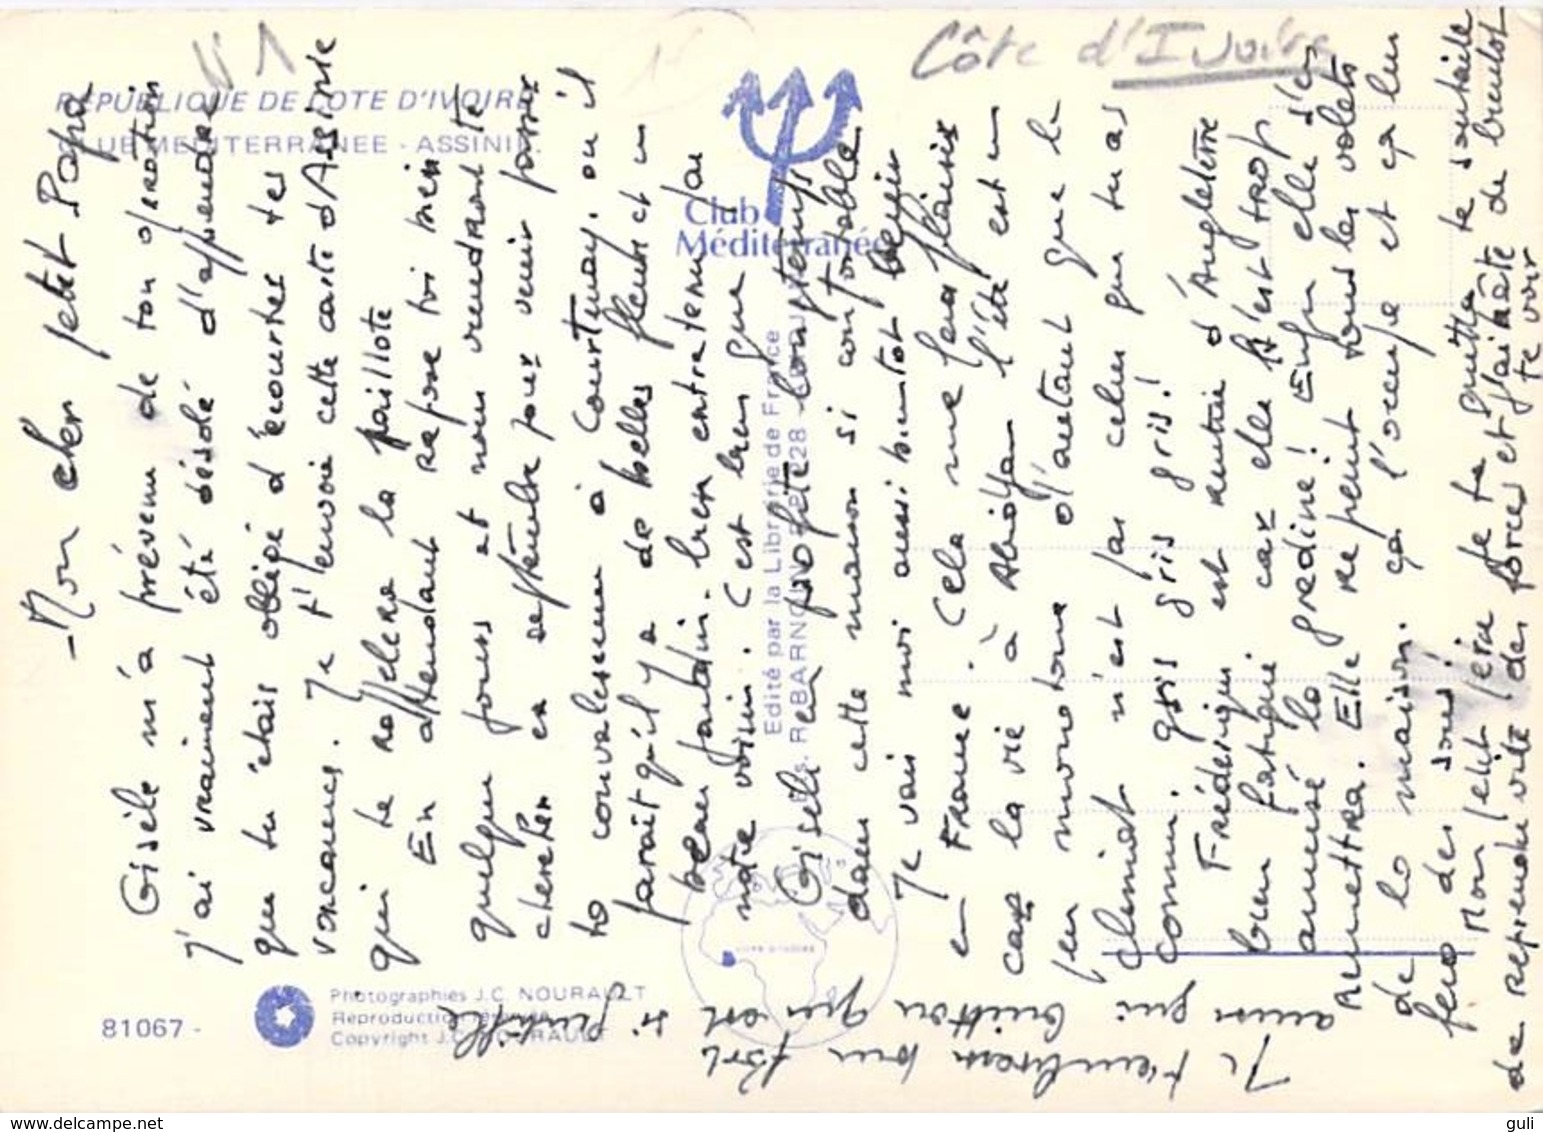 Côte d'Ivoire
REPUBLIQUE DE COTE D'IVOIRE
CLUB MEDITERRANEE - ASSINIE.
Club
Méditerranée
Edité par la Librairie de France
81067 -
Photographies J.C. NOURAULT
Reproduction réservée
Copyright J.C. NOURAULT
COTE D'IVOIRE
- Mon cher petit Papa
Gisèle m'a prévenu de ton opération
j'ai vraiment été désolé d'apprendre
que tu étais obligé d'écourter tes
vacances. Je t'envoie cette carte d'Assinie
qui te rappelera la paillote
En attendant repose toi bien
quelques jours et nous reviendrons te
chercher en septembre pour venir passer
ta convalescence à Courtenay, où il
parait qu'il y a de belles fleurs et un
beau jardin bien entretenu par
notre voisin. C'est bien que
Gisèle en profite longtemps
dans cette maison si confortable
Je vais moi aussi bientot venir
en France. Cela me fera plaisir
car la vie à Abidjan l'été est un
peu monotone d'autant que le
climat n'est pas celui que tu as
connu. gris gris gris gris!
Frédérique est rentrée d'Angleterre
bien fatiguée car elle s'est trop
amusé la gredine! Enfin elle s'en
remettra. Elle repeint tous les volets
de la maison. ça l'occupe et ça lui
fera des sous!
Mon petit père je te quitte te souhaite
de reprendre vite des forces et j'ai hâte de bientot
te voir
Je t'embrasse bien fort
ainsi que Guittou qui est si gentille